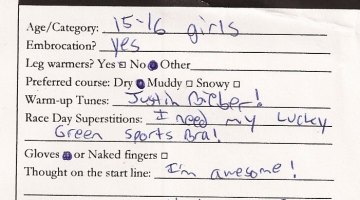 Age/Category: 15-16 girls
Embrocation? yes
Leg warmers? Yes □ No ● Other
Preferred course: Dry ● Muddy □ Snowy □
Warm-up Tunes: Justin Bieber!
Race Day Superstitions: I need my Lucky
Green Sports Bra!
Gloves ● or Naked fingers □
Thought on the start line: I'm awesome!